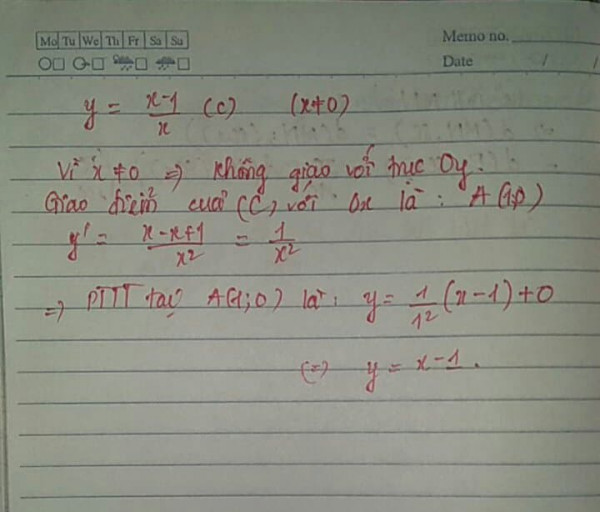 Mo Tu We Th Fr Sa Su
Memo no.
Date / /
y = x-1/x (C) (x≠0)
Vì x ≠ 0 => không giao với trục Oy.
Giao điểm của (C) với Ox là: A(1;0)
y' = x-x+1/x² = 1/x²
=> PTTT tại A(1;0) là: y = 1/1² (x-1)+0
(=) y = x-1.